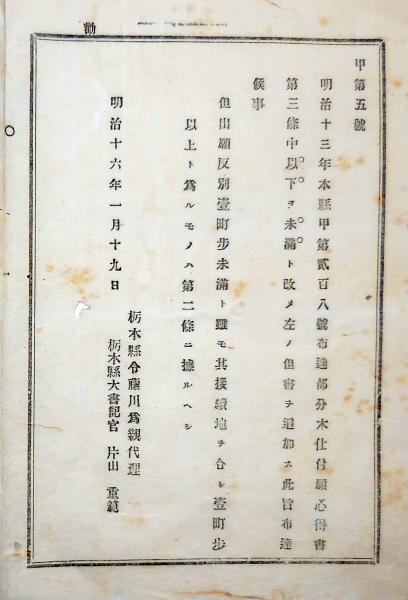 勸
甲第五號
明治十三年本縣甲第貳百八號布達部分木仕付願心得書
第三條中以下ヲ未滿ト改メ左ノ但書ヲ追加ス此旨布達
候事
但出願反別壹町步未滿ト雖モ其接續地ヲ合シ壹町步
以上ト爲ルモノハ第二條ニ據ルヘシ
明治十六年一月十九日
栃木縣令藤川爲親代理
栃木縣大書記官 片山 重範